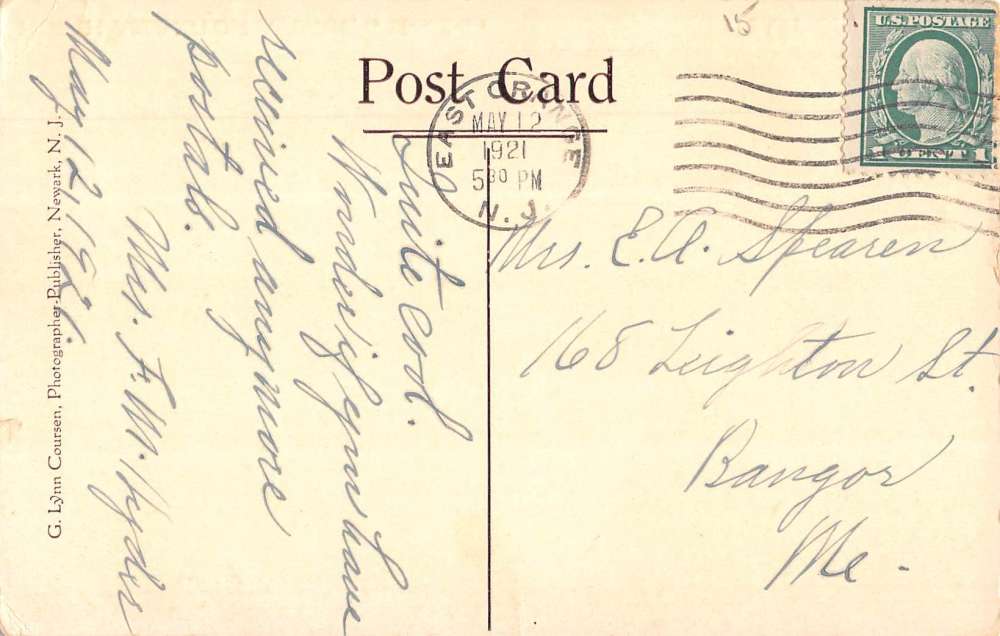 Post Card
U.S. POSTAGE
1 CENT 1
15
EAST ORANGE
MAY 12
1921
5 30 PM
N. J.
Quite cool.
Wonder if you have
received anymore
postals.
Mrs. F. W.
May 12, 1921.
Mrs. E. A. Spearen
168 Leighton St.
Bangor
Me.
G. Lynn Coursen, Photographer-Publisher, Newark, N. J.